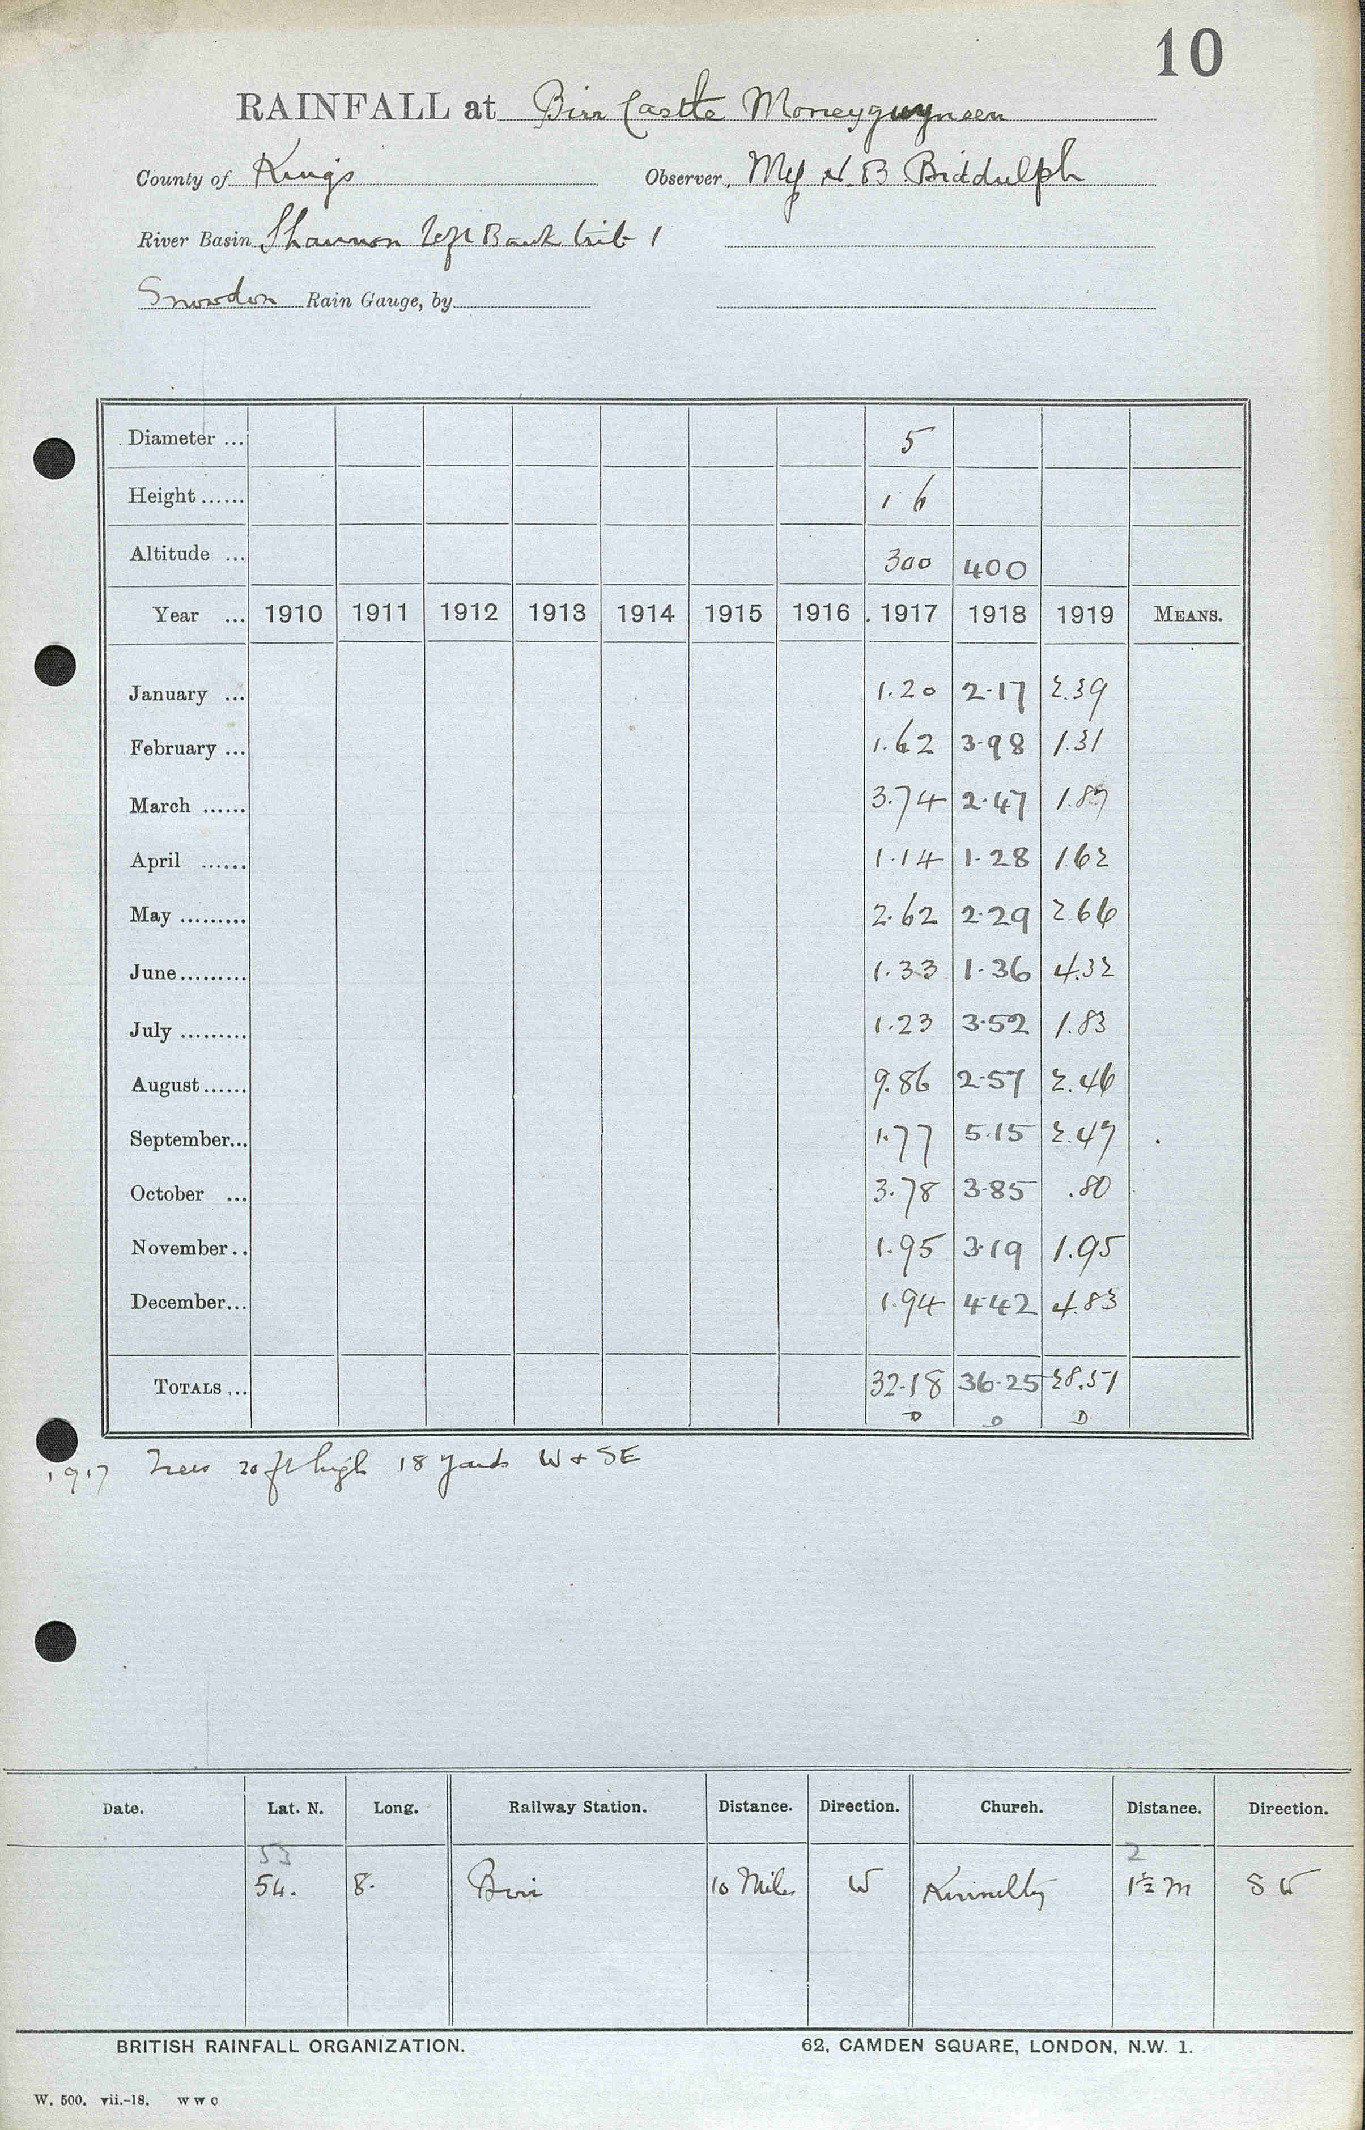 10
RAINFALL at Birr Castle Moneyguyneen
County of Kings Observer, Maj N. B Biddulph
River Basin Shannon Left Bank trib 1
Snowdon Rain Gauge, by
Diameter ... 5
Height ...... 1 6
Altitude ... 300 400
Year ... 1910 1911 1912 1913 1914 1915 1916 1917 1918 1919 MEANS.
January ... 1.20 2.17 2.39
February ... 1.62 3.98 1.31
March ...... 3.74 2.47 1.87
April ...... 1.14 1.28 1.62
May ......... 2.62 2.29 2.66
June ......... 1.33 1.36 4.32
July ......... 1.23 3.52 1.83
August ...... 9.86 2.57 2.46
September... 1.77 5.15 2.47
October ... 3.78 3.85 .80
November .. 1.95 3.19 1.95
December... 1.94 4.42 4.83
TOTALS ... 32.18 36.25 28.51
D D D
1917 Trees 20 ft high 18 yards W & SE
Date. Lat. N. Long. Railway Station. Distance. Direction. Church. Distance. Direction.
53 2
54. 8. Birr 10 Miles W Kinnitty 1½ m S W
BRITISH RAINFALL ORGANIZATION. 62, CAMDEN SQUARE, LONDON, N.W. 1.
W. 500. vii.-18. W W C